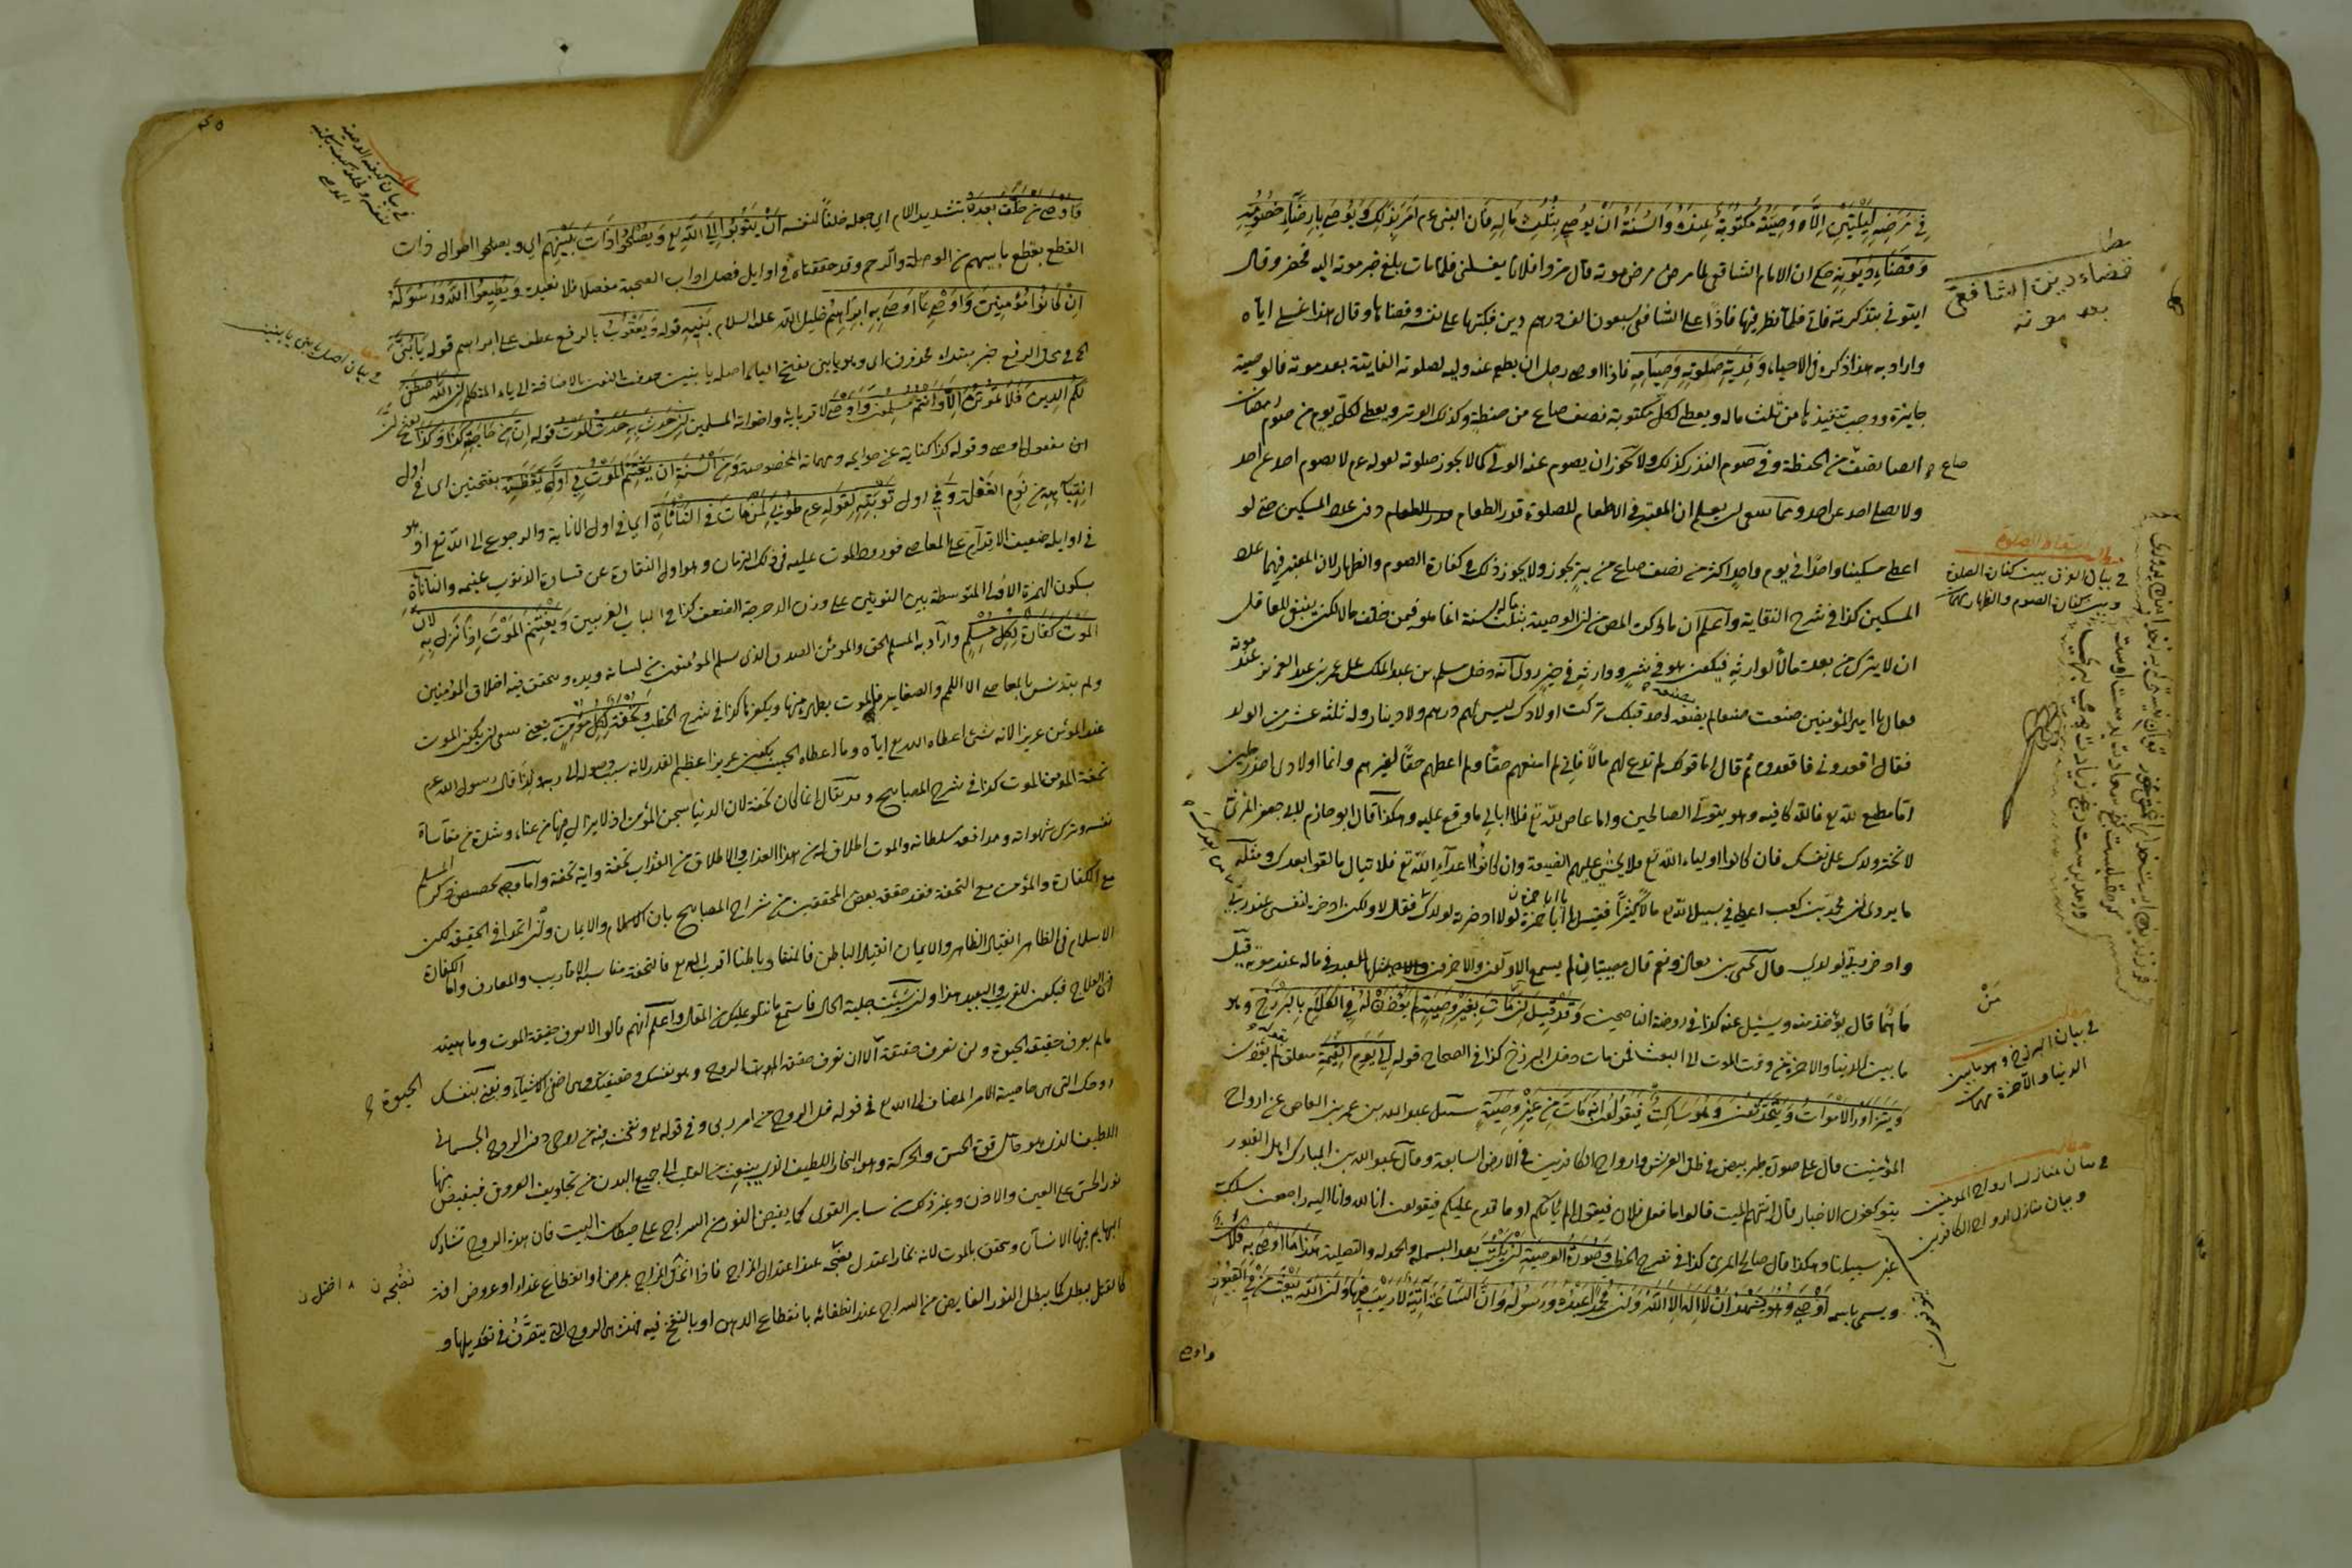 في مرضه ليلتين الا ووصيته مكتوبة عنده والسنة ان يوصي بثلث ماله فان النبي عم امر بذلك ويوصي بارضاء خصومه
وقضاء ديونه حكي ان الامام الشافعي لما مرض مرض موته قال مروا فلانا يغسلني فلما مات بلغ خبر موته اليه فحضر وقال
ايتوني بتذكرته فاتي فلما نظر فيها فاذا على الشافعي سبعون الف درهم دين فكتبها على نفسه وقضاها وقال هذا غسلي اياه
واراد به هذا ذكره في الاحياء وفدية صلوته وصيامه فاذا اوصى رجل ان يطعم عنه وليه لصلوته الفايتة بعد موته فالوصية
جايزة ووجب تنفيذها من ثلث ماله ويعطى لكل مكتوبة نصف صاع من حنطة وكذلك الوتر ويعطى لكل يوم من صوم رمضان
ايضا نصف من الحنطة وفي صوم النذر كذلك ولا يجوز ان يصوم عنه الولي كما لا يجوز صلوته لقوله عم لا يصوم احد عن احد
ولا يصلي احد عن احد ومما ينبغي ان يعلم ان المعتبر في الاطعام للصلوة قدر الطعام دون عدد المسكين حتى لو
اعطى مسكينا واحدا في يوم واحد اكثر من نصف صاع من بر يجوز ولا يجوز ذلك في كفارة الصوم والظهار لان المعتبر فيهما عدد
المسكين كذا في شرح النقاية واعلم ان ما ذكره المص من ان الوصية بثلث ماله سنة انما هو فيمن خلف مالا لكن ينبغي للعاقل
ان لا يترك من بعده مالا لوارثه فيكون هو في شر ووارثه في خير روي انه دخل مسلم بن عبد الملك على عمر بن عبد العزيز عند موته
فقال يا امير المؤمنين صنعت صنعا لم يصنعه احد قبلك تركت اولادك ليس لهم درهم ولا دينار وله ثلثة عشر من الولد
فقال اقعدوني فاقعدوه ثم قال اما قولك لم تدع لهم مالا فاني لم امنعهم حقا ولم اعطهم حقا لغيرهم وانما اولادي احد رجلين
اما مطيع لله تع فالله كافيه وهو يتولى الصالحين واما عاص لله تع فلا ابالي ما وقع عليه وهكذا قال ابو حازم لابي جعفر
لا تختر ولدك على نفسك فان كانوا اولياء الله تع فلا يخشى عليهم الضيعة وان كانوا اعداء الله تع فلا تبال ما لقوا بعدك ومثله
ما يروى ان محمد بن كعب اعطى في سبيل الله تع مالا كثيرا فقيل له يا ابا حمزة لولا ادخرته لولدك فقال لا ولكن ادخره لنفسي عند ربي
وادخر ربي لولدي قال يحيى بن معاذ مصيبتان لم يسمع الاولون والاخرون بمثلهما للعبد في ماله عند موته قيل
ما هما قال يؤخذ منه ويسئل عنه كذا في روضة الناصحين وقد قيل ان من مات بغير وصية لم يؤذن له في الكلام بالبرزخ وهو
ما بين الدنيا والاخرة من وقت الموت الى البعث فمن مات دخل البرزخ كذا في الصحاح قوله الى يوم القيمة متعلق بلم يؤذن
ويتزاور الاموات ويتحدثون وهو ساكت فيقولون انه مات من غير وصية سئل عبد الله بن عمر بن العاص عن ارواح
المؤمنين قال على صورة طير بيض في ظل العرش وارواح الكافرين في الارض السابعة وقال عبد الله بن المبارك اهل القبور
يتوكفون الاخبار فاذا اتيهم الميت قالوا ما فعل فلان فيقول الم ياتكم او ما قدم عليكم فيقولون انا لله وانا اليه راجعون سلك به
غير سبيلنا وهكذا قال صالح المري كذا في شرح الخطب وصورة الوصية ان يكتب بعد البسملة والحمدلة والتصلية هذا ما اوصى به فلان
ويسمي باسمه اوصى وهو يشهد ان لا اله الا الله وان محمدا عبده ورسوله وان الساعة آتية لا ريب فيها وان الله يبعث من في القبور
قضاء دين الشافعي
بعد موته
صاع
في بيان الفرق بين كفارة الصلوة
وبين كفارة الصوم والظهار
في بيان البرزخ وهو ما بين
الدنيا والآخرة
في بيان منازل ارواح المؤمنين
وبيان منازل ارواح الكافرين
واوصى
فاوصى من خلف بعده بتشديد اللام اي جعله خلفا لنفسه ان يتوبوا الى الله تع ويصلحوا ذات بينهم اي ويصلحوا احوال ذات
القطع بقطع ما بينهم من الوصلة والرحم وقد حققناه في اوايل فصل اداب الصحبة مفصلا فلا نعيده ويطيعوا الله ورسوله
ان كانوا مؤمنين واوصى بما اوصى به ابراهيم خليل الله عليه السلام بنيه قوله ويعقوب بالرفع عطف على ابراهيم قوله يا بني
في محل الرفع خبر مبتداء محذوف اي وهو يا بني بفتح الياء اصله يا بنين حذفت النون بالاضافة الى ياء المتكلم ان الله اصطفى
لكم الدين فلا تموتن الا وانتم مسلمون واوصى لاقربائه واخوانه المسلمين ان حدث به حدث الموت قوله ان من حاجته كذا وكذا
مفعول اوصى وقوله كذا كناية عن حوايجه ومهماته المخصوصة ومن السنة ان يغتنم الموت في اول يقظته بفتحتين اي في اول
انتباهه من نوم الغفلة وفي اول توبته لقوله عم طوبى لمن مات في النأنأة اي في اول الانابة والرجوع الى الله تع اذ هو
في اوايله ضعيف الاقدام على المعاصي فورود الموت عليه في ذلك الزمان وهو اول النقاوة عن قساوة الذنوب غنيمة والنأنأة
بسكون الهمزة الاولى المتوسطة بين النونين على وزن الدحرجة الضعف كذا في الباب الغريبين ويغتنم الموت اذا نزل به لان
الموت كفارة لكل مسلم واراد به المسلم الحق والمؤمن الصدق الذي سلم المؤمنون من لسانه ويده وتحقق فيه اخلاق المؤمنين
ولم يتدنس بالمعاصي الا اللمم والصغاير فالموت يطهره منها ويكفرها كذا في شرح الخطب وتحفة لكل مؤمن يعني ينبغي ان يكون الموت
عند المؤمن عزيزا لانه شئ اعطاه الله تع اياه وما اعطاه الحبيب يكون عزيزا عظيم القدر لانه سبب وصوله الى ربه ولذا قال رسول الله عم
تحفة المؤمن الموت كذا في شرح المصابيح وقد يقال انما كان تحفة لان الدنيا سجن المؤمن اذ لا يزال فيها من عناء وشدة من مقاساة
نفسه وترك شهواته ومدافعة سلطانه والموت اطلاق له من هذا العذاب والاطلاق من العذاب تحفة واية تحفة واما وجه تخصيص ذكر المسلم
مع الكفارة والمؤمن مع التحفة فقد حقق بعض المحققين من شراح المصابيح بان الاسلام والايمان وان اتحدا في الحقيقة لكن
الاسلام في الظاهر انقياد الظاهر والايمان انقياد الباطن فالمنقاد باطنا اقرب الى الله تع فالتحفة مناسبة الاقاريب والمعارف واما الكفارة
فيكون للقريب والبعيد هذا وان شئت جلية الحال فاستمع ما نتلو عليك من المقال واعلم انهم قالوا لا يعرف حقيقة الموت وماهيته
ما لم يعرف حقيقة الحيوة ولن تعرف حقيقة الا ان تعرف حقيقة الروح وهو نفسك وحقيقتك وهي اخفى الاشياء ونعني بنفسك
روحك التي هي خاصية الامر المضاف الى الله تع في قوله قل الروح من امر ربي وفي قوله تع ونفخت فيه من روحي دون الروح الجسماني
اللطيف الذي هو حامل قوة الحس والحركة وهو البخار اللطيف الذي ينبعث من القلب الى جميع البدن من تجاويف العروق فيفيض منها
نور الحس على العين والاذن وغير ذلك من ساير القوى كما يفيض النور من السراج على حيطان البيت فان هذه الروح تشارك
البهايم فيها الانسان وتمحق بالموت لانه بخار اعتدل نضجه عند اعتدال المزاج فاذا انحل المزاج بعرض او انقطاع غذاء او عروض افة
كالقتل يبطل كما يبطل النور الفايض من السراج عند انطفائه بانقطاع الدهن او بالنفخ فيه فهذه هي الروح التي يتصرف في تعديلها و
في بيان كيفية الوصية
في بيان اصل يا بني يا بنين
الحيوة
نضجه ن